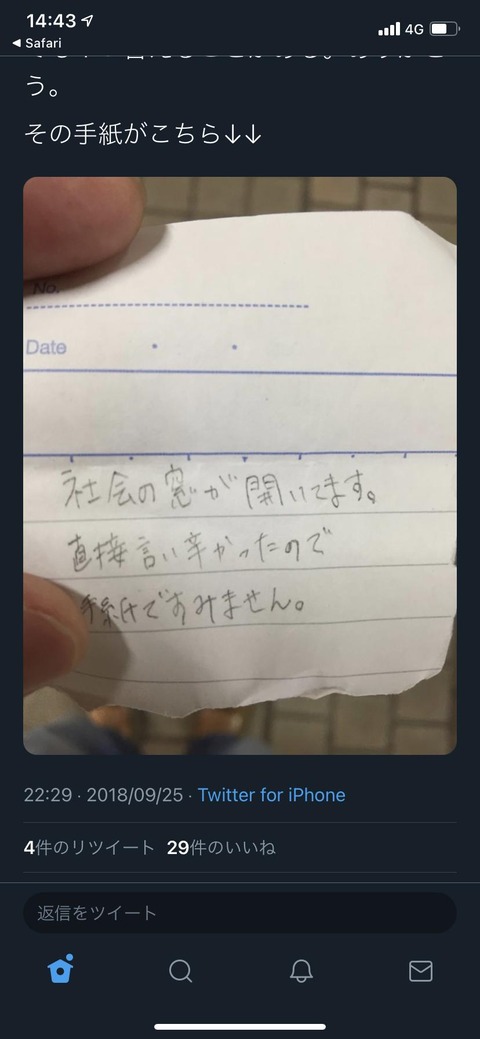 14:43
4G
Safari
う。
その手紙がこちら↓↓
No.
Date
社会の窓が開いてます。
直接言い辛かったので
手紙ですみません。
22:29 · 2018/09/25 · Twitter for iPhone
4件のリツイート 29件のいいね
返信をツイート